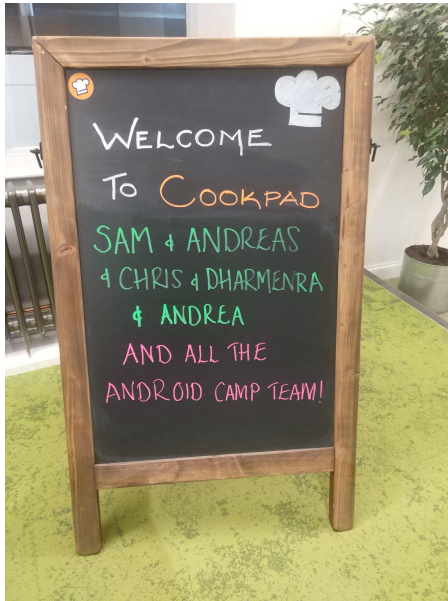 WELCOME
TO COOKPAD
SAM & ANDREAS
& CHRIS & DHARMENRA
& ANDREA
AND ALL THE
ANDROID CAMP TEAM!